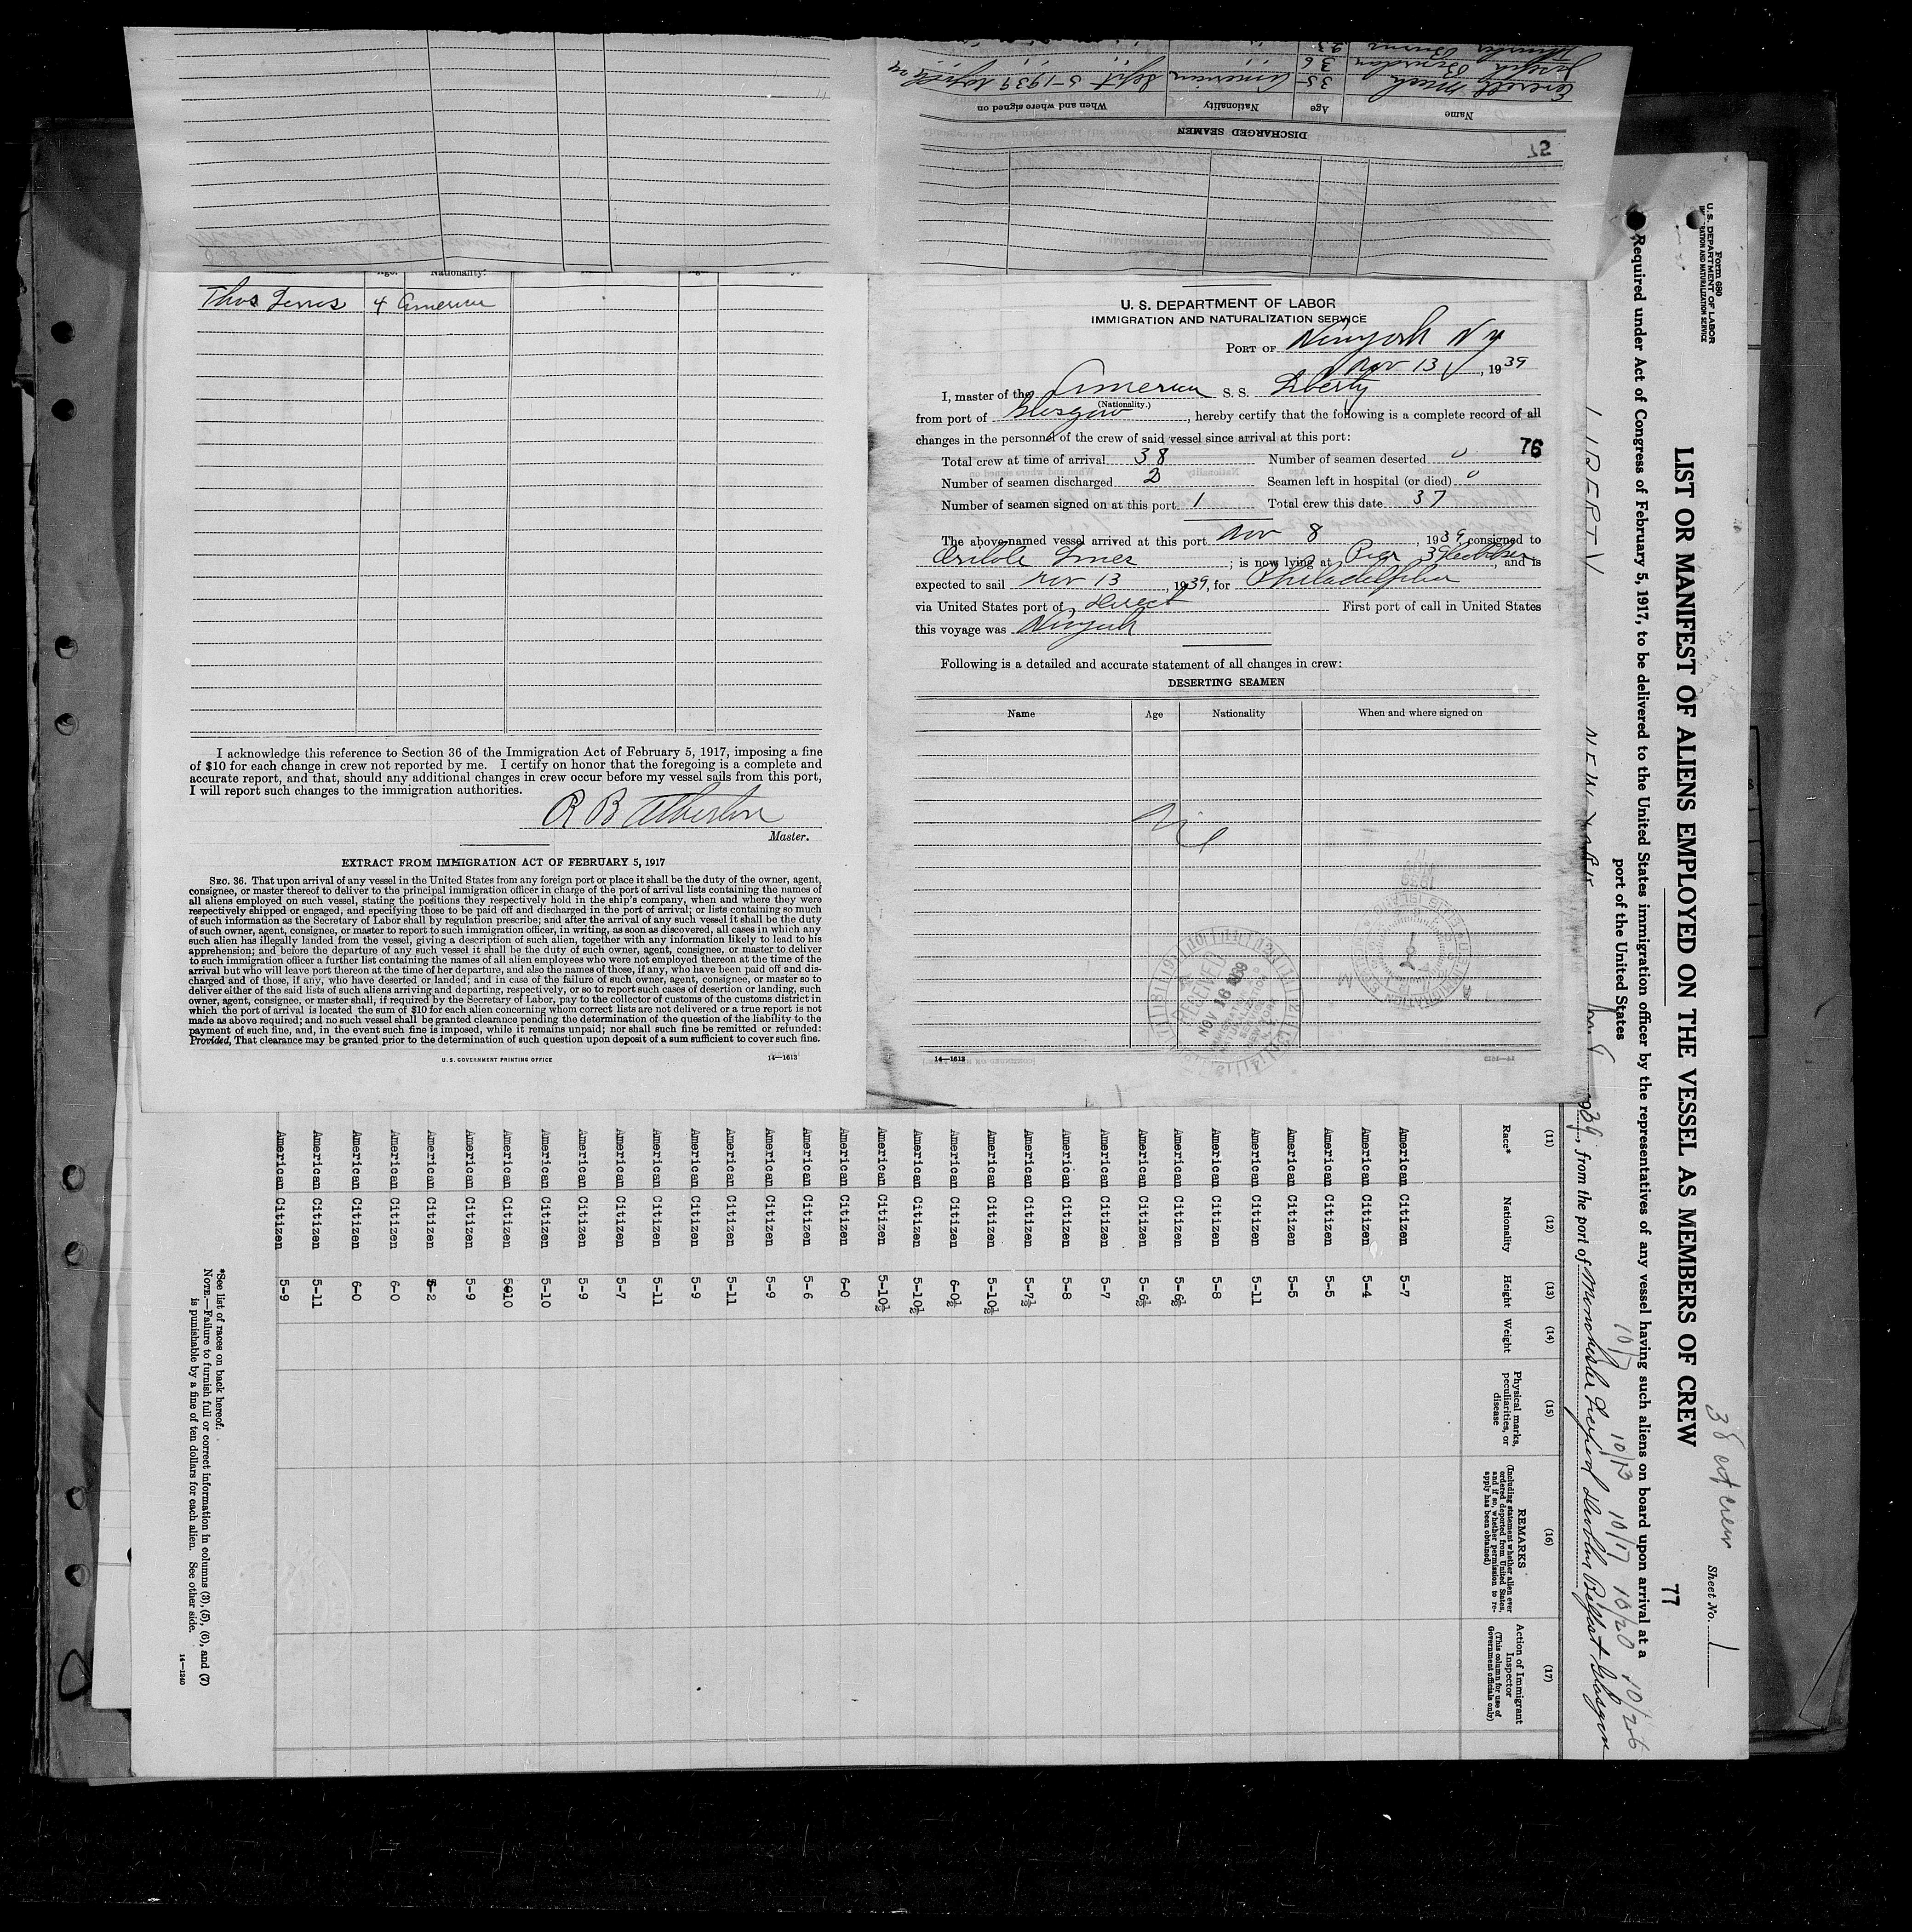 DISCHARGED SEAMEN
Name
Age
Nationality
When and where signed on
35 American Sept 5-1939
36
23
Nationality.
Thos 4 American
I acknowledge this reference to Section 36 of the Immigration Act of February 5, 1917, imposing a fine
of $10 for each change in crew not reported by me. I certify on honor that the foregoing is a complete and
accurate report, and that, should any additional changes in crew occur before my vessel sails from this port,
I will report such changes to the immigration authorities.
R B Atherton
Master.
EXTRACT FROM IMMIGRATION ACT OF FEBRUARY 5, 1917
SEC. 36. That upon arrival of any vessel in the United States from any foreign port or place it shall be the duty of the owner, agent,
consignee, or master thereof to deliver to the principal immigration officer in charge of the port of arrival lists containing the names of
all aliens employed on such vessel, stating the positions they respectively hold in the ship's company, when and where they were
respectively shipped or engaged, and specifying those to be paid off and discharged in the port of arrival; or lists containing so much
of such information as the Secretary of Labor shall by regulation prescribe; and after the arrival of any such vessel it shall be the duty
of such owner, agent, consignee, or master to report to such immigration officer, in writing, as soon as discovered, all cases in which any
such alien has illegally landed from the vessel, giving a description of such alien, together with any information likely to lead to his
apprehension; and before the departure of any such vessel it shall be the duty of such owner, agent, consignee, or master to deliver
to such immigration officer a further list containing the names of all alien employees who were not employed thereon at the time of the
arrival but who will leave port thereon at the time of her departure, and also the names of those, if any, who have been paid off and dis-
charged and of those, if any, who have deserted or landed; and in case of the failure of such owner, agent, consignee, or master so to
deliver either of the said lists of such aliens arriving and departing, respectively, or so to report such cases of desertion or landing, such
owner, agent, consignee, or master shall, if required by the Secretary of Labor, pay to the collector of customs of the customs district in
which the port of arrival is located the sum of $10 for each alien concerning whom correct lists are not delivered or a true report is not
made as above required; and no such vessel shall be granted clearance pending the determination of the question of the liability to the
payment of such fine, and, in the event such fine is imposed, while it remains unpaid; nor shall such fine be remitted or refunded:
Provided, That clearance may be granted prior to the determination of such question upon deposit of a sum sufficient to cover such fine.
U. S. GOVERNMENT PRINTING OFFICE 14—1613
U. S. DEPARTMENT OF LABOR
IMMIGRATION AND NATURALIZATION SERVICE
PORT OF New York N Y
Nov 13, 1939
I, master of the American S. S. Liberty
(Nationality.)
from port of Glasgow, hereby certify that the following is a complete record of all
changes in the personnel of the crew of said vessel since arrival at this port:
76
Total crew at time of arrival 38 Number of seamen deserted 0
Number of seamen discharged 2 Seamen left in hospital (or died) 0
Number of seamen signed on at this port 1 Total crew this date 37
The above-named vessel arrived at this port Nov 8, 1939, consigned to
Oriole Lines; is now lying at Pier 39 Hoboken, and is
expected to sail Nov 13, 1939, for Philadelphia
via United States port of direct First port of call in United States
this voyage was New York
Following is a detailed and accurate statement of all changes in crew:
DESERTING SEAMEN
Name Age Nationality When and where signed on
Nil
RECEIVED
NOV 16 1939
14—1613
Form 680
U. S. DEPARTMENT OF LABOR
IMMIGRATION AND NATURALIZATION SERVICE
38 crew
Sheet No. 1
LIST OR MANIFEST OF ALIENS EMPLOYED ON THE VESSEL AS MEMBERS OF CREW
77
Required under Act of Congress of February 5, 1917, to be delivered to the United States immigration officer by the representatives of any vessel having such aliens on board upon arrival at a
port of the United States
10/7 10/13 10/17 10/20 10/26
LIBERTY NEW YORK Nov 8 1939, from the port of Manchester Liverpool Dublin Belfast Glasgow
(11) (12) (13) (14) (15) (16) (17)
Race* Nationality Height Weight
Physical marks, peculiarities, or disease
REMARKS
(Including statement whether alien ever ordered deported from United States, and if so, whether permission to re-apply has been obtained)
Action of Immigrant Inspector
(This column for use of Government officials only)
American Citizen 5-7
American Citizen 5-4
American Citizen 5-5
American Citizen 5-5
American Citizen 5-11
American Citizen 5-8
American Citizen 5-6½
American Citizen 5-6½
American Citizen 5-7
American Citizen 5-8
American Citizen 5-7½
American Citizen 5-10½
American Citizen 6-0½
American Citizen 5-10½
American Citizen 5-10½
American Citizen 6-0
American Citizen 5-6
American Citizen 5-9
American Citizen 5-11
American Citizen 5-9
American Citizen 5-11
American Citizen 5-7
American Citizen 5-9
American Citizen 5-10
American Citizen 5010
American Citizen 5-9
American Citizen 5-2
American Citizen 6-0
American Citizen 6-0
American Citizen 5-11
American Citizen 5-9
*See list of races on back hereof.
NOTE.—Failure to furnish full or correct information in columns (3), (5), (6), and (7)
is punishable by a fine of ten dollars for each alien. See other side.
14—1240